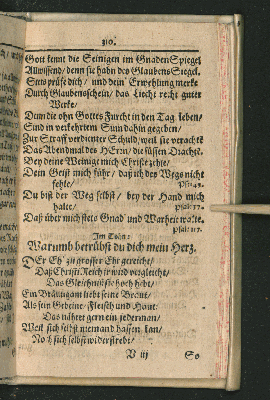 310.
Gott kennt die Seinigen im Gnaden Spiegel
Allwissend/ denn sie habn des Glaubens Siegel.
Sünds prüfe dich/ und dein Erwehlung mercke
Durch Glaubensschein/ das Liecht recht guter
Wercke/
Dum die ohn Gottes Furcht in den Tag leben/
Sind in verkehrtem Sinn dahin gegeben/
Zur Straff verdienter Schuld/ weil sie veracht
Das Abendmal des HErrn/ die süssen Tracht.
Bey deine Weinigt mich Christe zehle/
Dein Geist mich führ/ daß ich des Wegs nicht
fehle/
Psal:43.
Du bist der Weg selbst/ bey der Hand mich
halte/
Psal:37.
Daß über mich stets Gnad und Warheit walte.
Psal:117.
Im Thon:
Warumb betrübst du dich mein Hertz.
DEr Eh' zu grosser Ehr gereicht/
Daß Christi Reich ir wird vergleicht/
Das Gleichniß sie hoch hebt/
Ein Bräutigam liebt seine Braut/
Als sein Gebeine/ Fleisch und Haut.
Das nähret gern ein jederman/
Weil sich selbst niemand hassen kan/
Noch sich selbst widerstrebt/
V iij
So